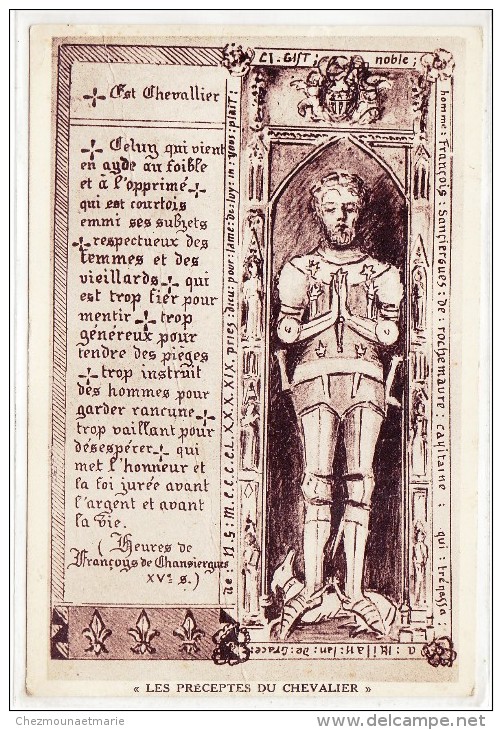 Est Chevallier
Celuy qui vient
en ayde au foible
et à l'opprimé
qui est courtois
emmi ses subjets
respectueux des
femmes et des
vieillards qui
est trop fier pour
mentir trop
généreux pour
tendre des pièges
trop instruit
des hommes pour
garder rancune
trop vaillant pour
désespérer qui
met l'honneur et
la foi jurée avant
l'argent et avant
la vie.
(Heures de
Françoys de Chansiergues
XVe s.)
CI-GIST; noble;
homme: françois: sanciergues: de: rochemaure: capitaine: qui: trépassa:
a: Milan: lan: de: Grace:
m:c:c:c:c:L.XXX.XIX. pries: dieu: pour: lame: de: luy:
« LES PRÉCEPTES DU CHEVALIER »
Chezmounaetmarie
www.delcampe.net